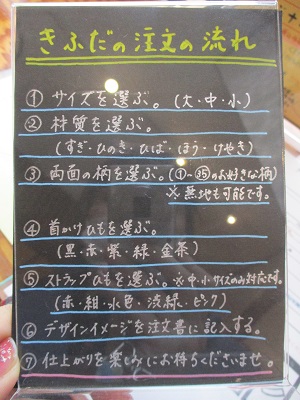 きふだの注文の流れ
① サイズを選ぶ。(大・中・小)
② 材質を選ぶ。
(すぎ・ひのき・ひば・ほう・けやき)
③ 両面の柄を選ぶ。(①〜㉟のお好きな柄)
※無地も可能です。
④ 首かけひもを選ぶ。
(黒・赤・紫・緑・金茶)
⑤ ストラップひもを選ぶ。※中・小サイズのみ対応です。
(赤・紺・水色・渋緑・ピンク)
⑥ デザインイメージを注文書に記入する。
⑦ 仕上がりを楽しみにお待ちくださいませ。